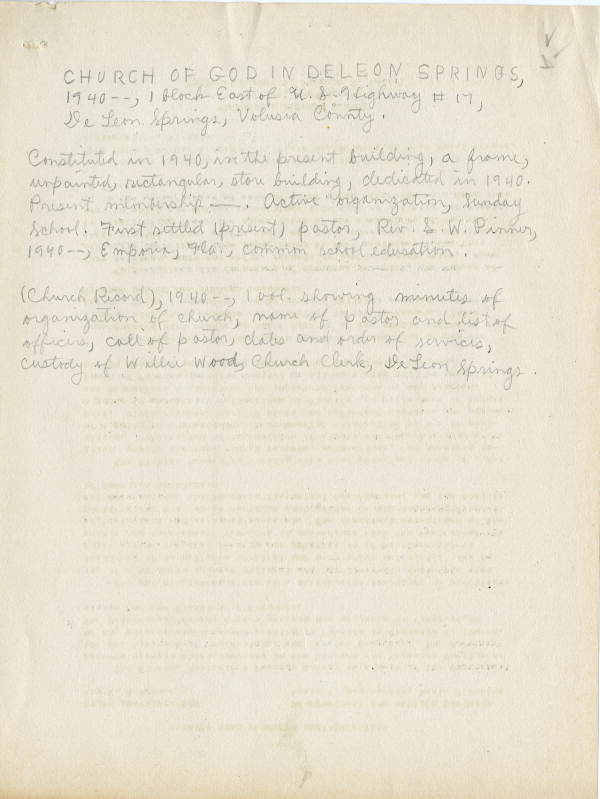 CHURCH OF GOD IN DELEON SPRINGS,
1940--, 1 block East of U. S. Highway # 17,
De Leon Springs, Volusia County.
Constituted in 1940, in the present building, a frame,
unpainted, rectangular, store building, dedicated in 1940.
Present membership —. Active organization, Sunday
School. First settled (present) pastor, Rev. S. W. Pinner,
1940--, Emporia, Fla., common school education.
(Church Record), 1940--, 1 vol. showing minutes of
organization of church, name of pastor and list of
officers, call of pastor, dates and order of services,
custody of Willie Wood, Church Clerk, De Leon Springs.